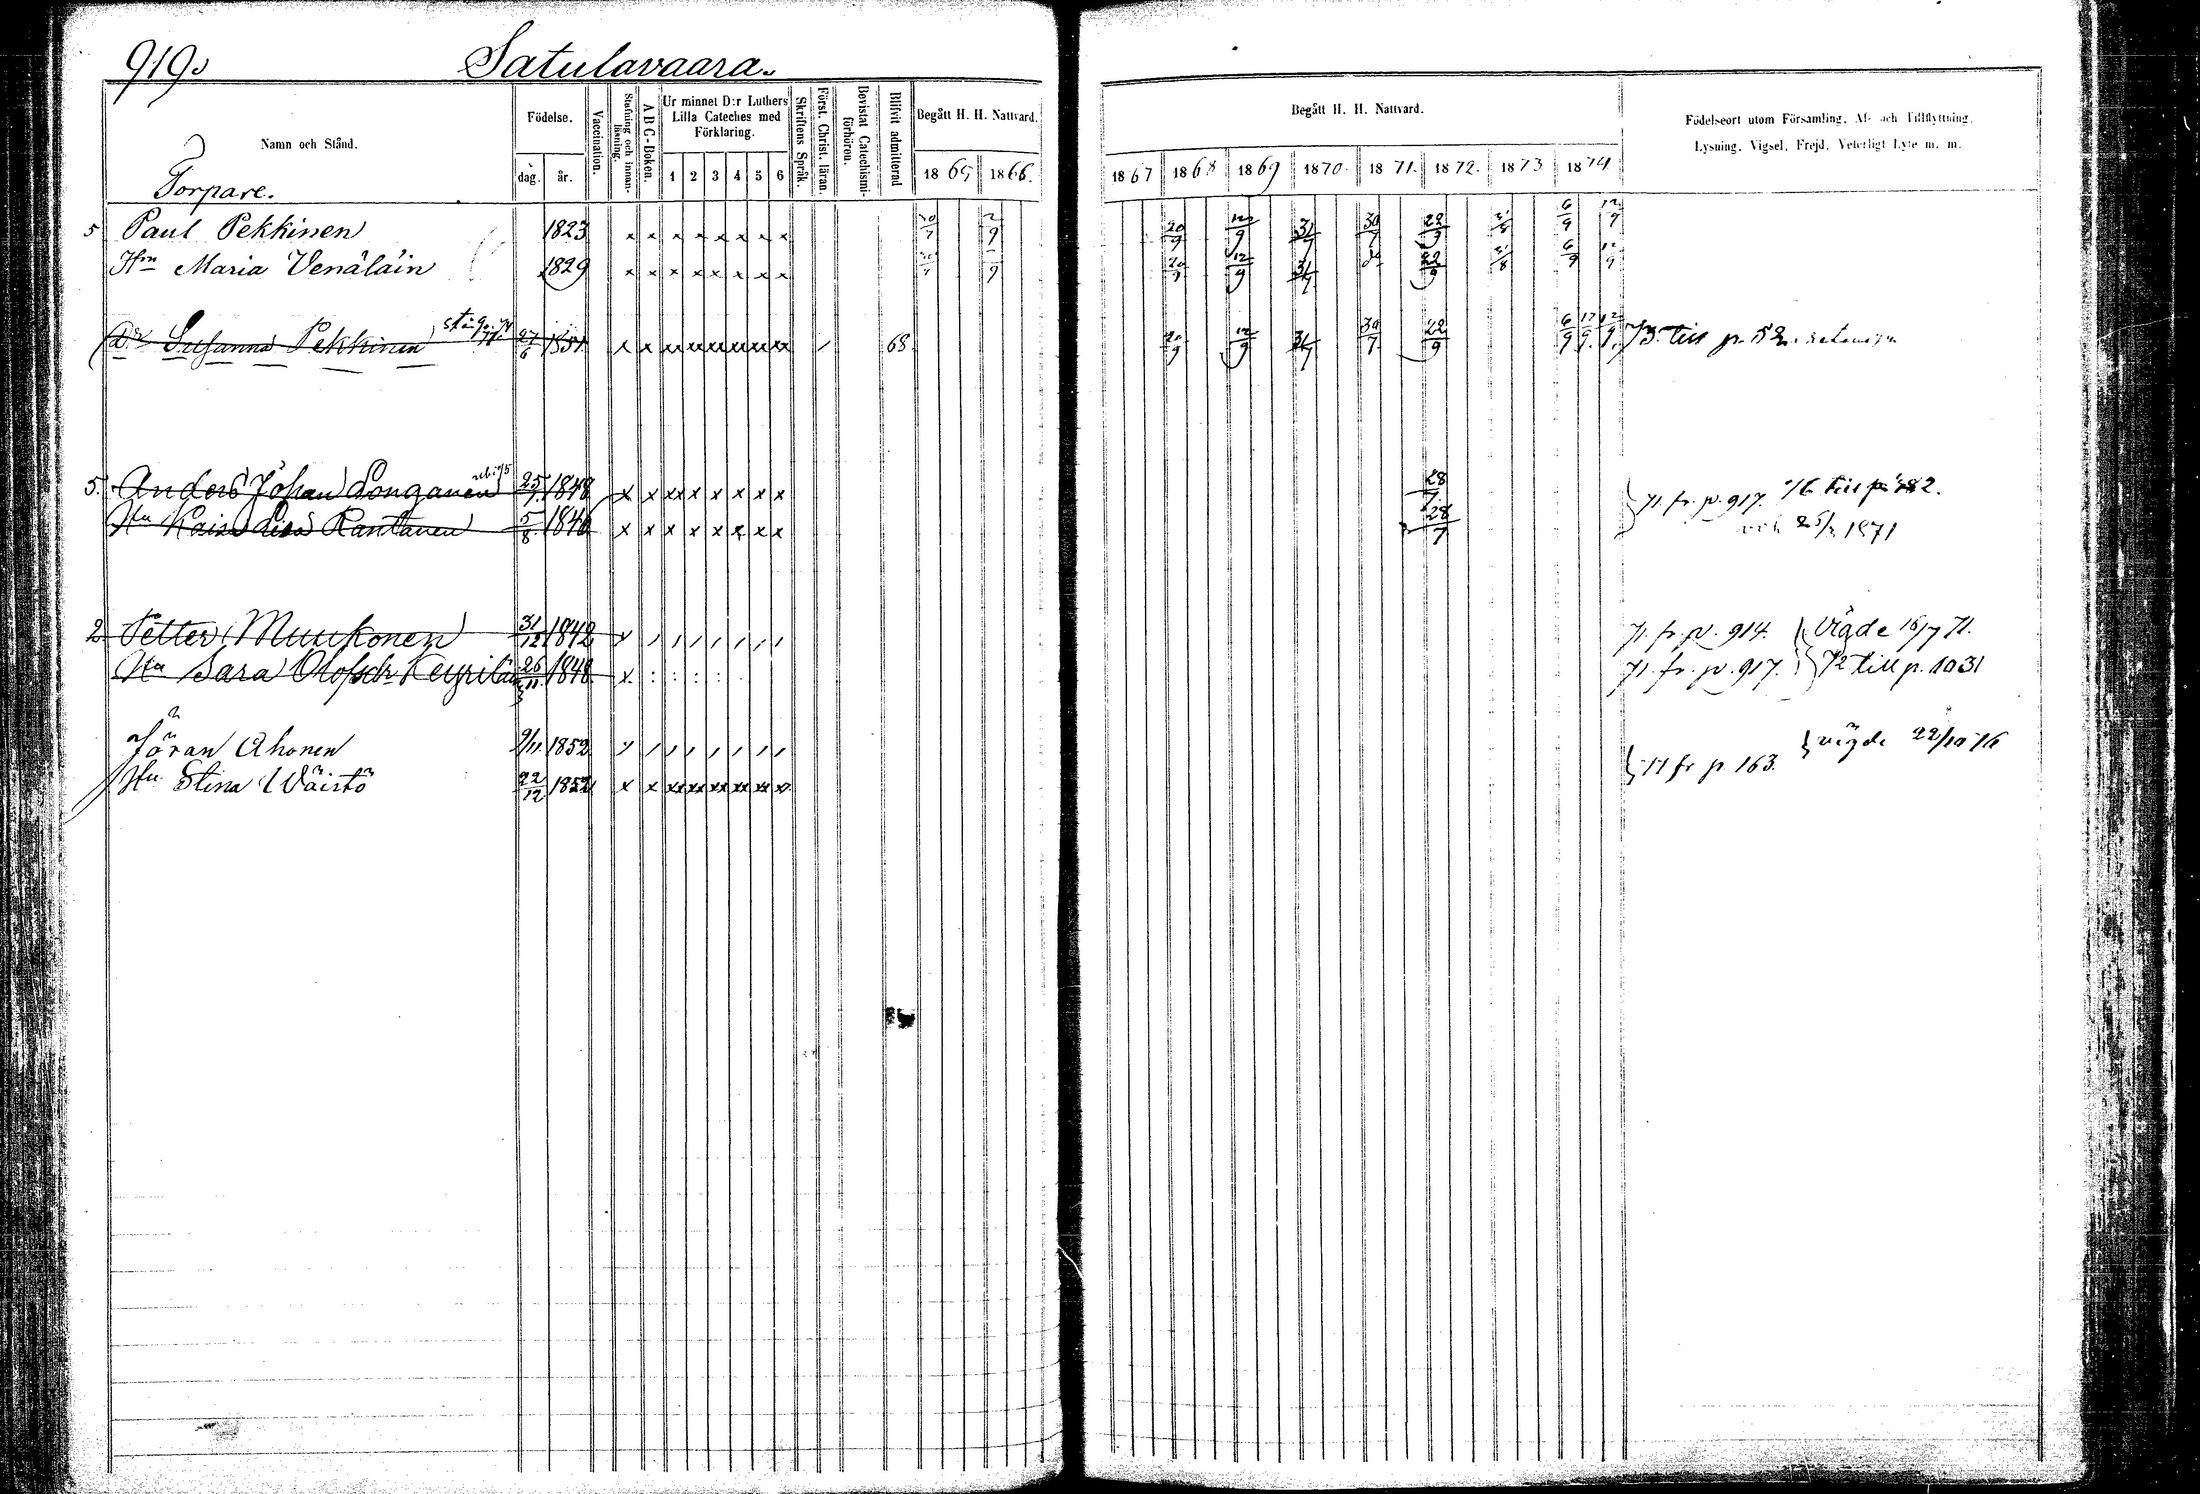 919.
Satulavaara.
Namn och Stånd.
Födelse.
dag.
år.
Vaccination.
Stafning och innan-läsning.
A B C-Boken.
Ur minnet D:r Luthers
Lilla Cateches med
Förklaring.
1 2 3 4 5 6
Skriftens Språk.
Först. Christ. läran.
Bevistat Catechismi-förhören.
Blifvit admitterad
Begått H. H. Nattvard.
1865 1866.
Begått H. H. Nattvard.
1867 1868 1869 1870. 1871. 1872. 1873 1874
Födelseort utom Församling. Af- och Tillflyttning.
Lysning, Vigsel, Frejd, Veterligt Lyte m. m.
Torpare.
5 Paul Pekkinen 1823 x x x x x x x x 20/9 12/9 31/7 30/7 22/9 6/9 12/9
Hn Maria Venäläin 1829 x x x x x x x x 20/9 12/9 31/7 22/9 6/9 12/9
Dr Susanna Pekkinen 27/6 1851 x x xx xx xx xx xx xx / 68. 20/9 12/9 31/7 30/7 22/9 6/9 12/9 73 till p. 52.
5. Anders Johan Longanen 25/7 1848 x x xx x x x x x 28/7 71. fr. p. 917. 76 till p.
Hu Kaisa Lisa Rantanen 5/8 1846 x x x x x x x x 28/7 1871
2 Petter Muukonen 31/12 1842 x 71. fr. p. 914. Vigde 16/7 71.
Hu Sara Olofsdr Keyriläin 26/11 1848 x 71. fr. p. 917. 72 till p. 1031
Jöran Ahonen 9/11 1852 vigde 22/10 76
Hu Stina Wäistö 22/12 1852 x x xx xx xx xx xx xx 77 fr p. 163.